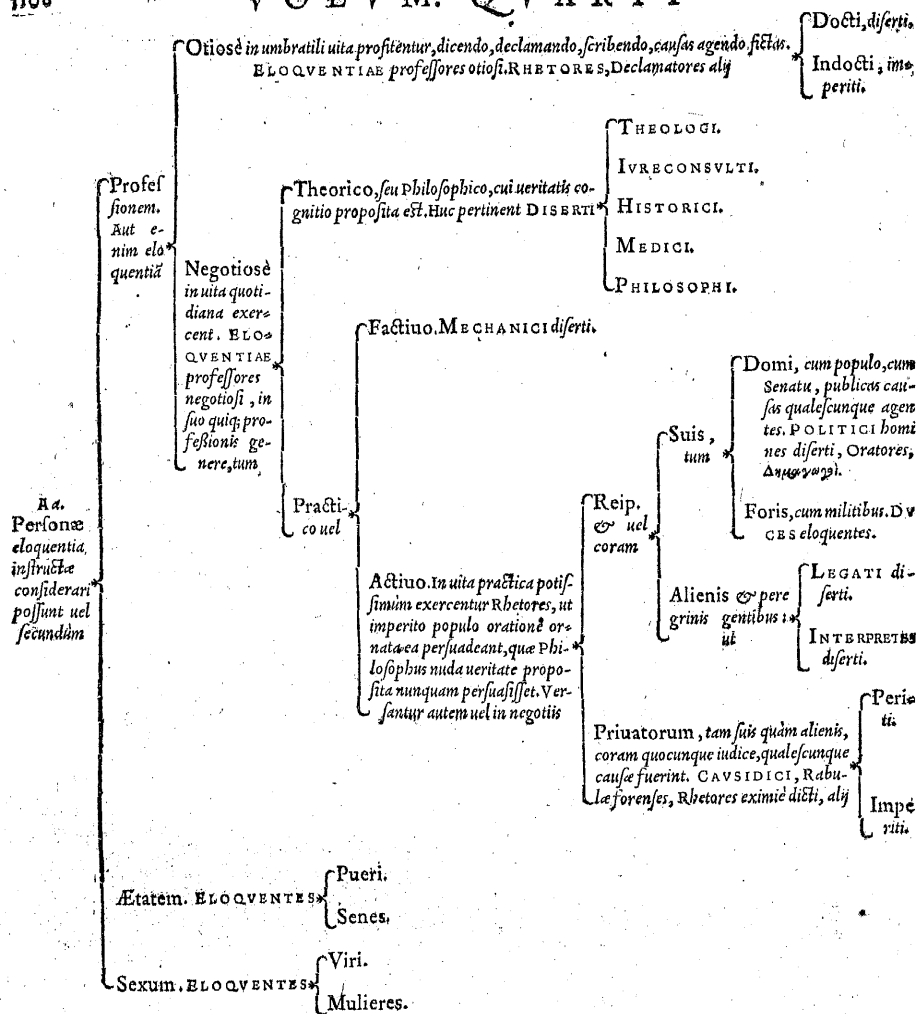 1106
VOLVM. QVARTI
Otiosè in umbratili uita profitentur, dicendo, declamando, scribendo, causas agendo fictas.
ELOQVENTIAE professores otiosi. RHETORES, Declamatores alij
Docti, diserti.
Indocti, im-
periti.
Profes
sionem.
Aut e-
nim elo
quentiã
Negotiosè
in uita quoti-
diana exer-
cent. ELO-
QVENTIAE
professores
negotiosi, in
suo quiq; pro-
feßionis ge-
nere, tum
Theorico, seu Philosophico, cui ueritatis co-
gnitio proposita est. Huc pertinent DISERTI
THEOLOGI.
IVRECONSVLTI.
HISTORICI.
MEDICI.
PHILOSOPHI.
Practi-
co uel
Factiuo. MECHANICI diserti.
Actiuo. In uita practica potis-
simùm exercentur Rhetores, ut
imperito populo orationẽ or-
nata ea persuadeant, quæ Phi-
losophus nuda ueritate propo-
sita nunquam persuasisset. Ver-
santur autem uel in negotiis
Reip.
& uel
coram
Suis,
tum
Domi, cum populo, cum
Senatu, publicas cau-
sas qualescunque agen
tes. POLITICI homi
nes diserti, Oratores,
Δημαγωγοὶ.
Foris, cum militibus. DV
CES eloquentes.
Alienis & pere
grinis gentibus:
ut
LEGATI di-
serti.
INTERPRETES
diserti.
Priuatorum, tam suis quàm alienis,
coram quocunque iudice, qualescunque
causæ fuerint. CAVSIDICI, Rabu-
læ forenses, Rhetores eximiè dicti, alij
Peri-
ti.
Impe
riti.
Aa.
Personæ
eloquentia
instructæ
considerari
possunt uel
secundùm
Ætatem. ELOQVENTES
Pueri.
Senes.
Sexum. ELOQVENTES
Viri.
Mulieres.